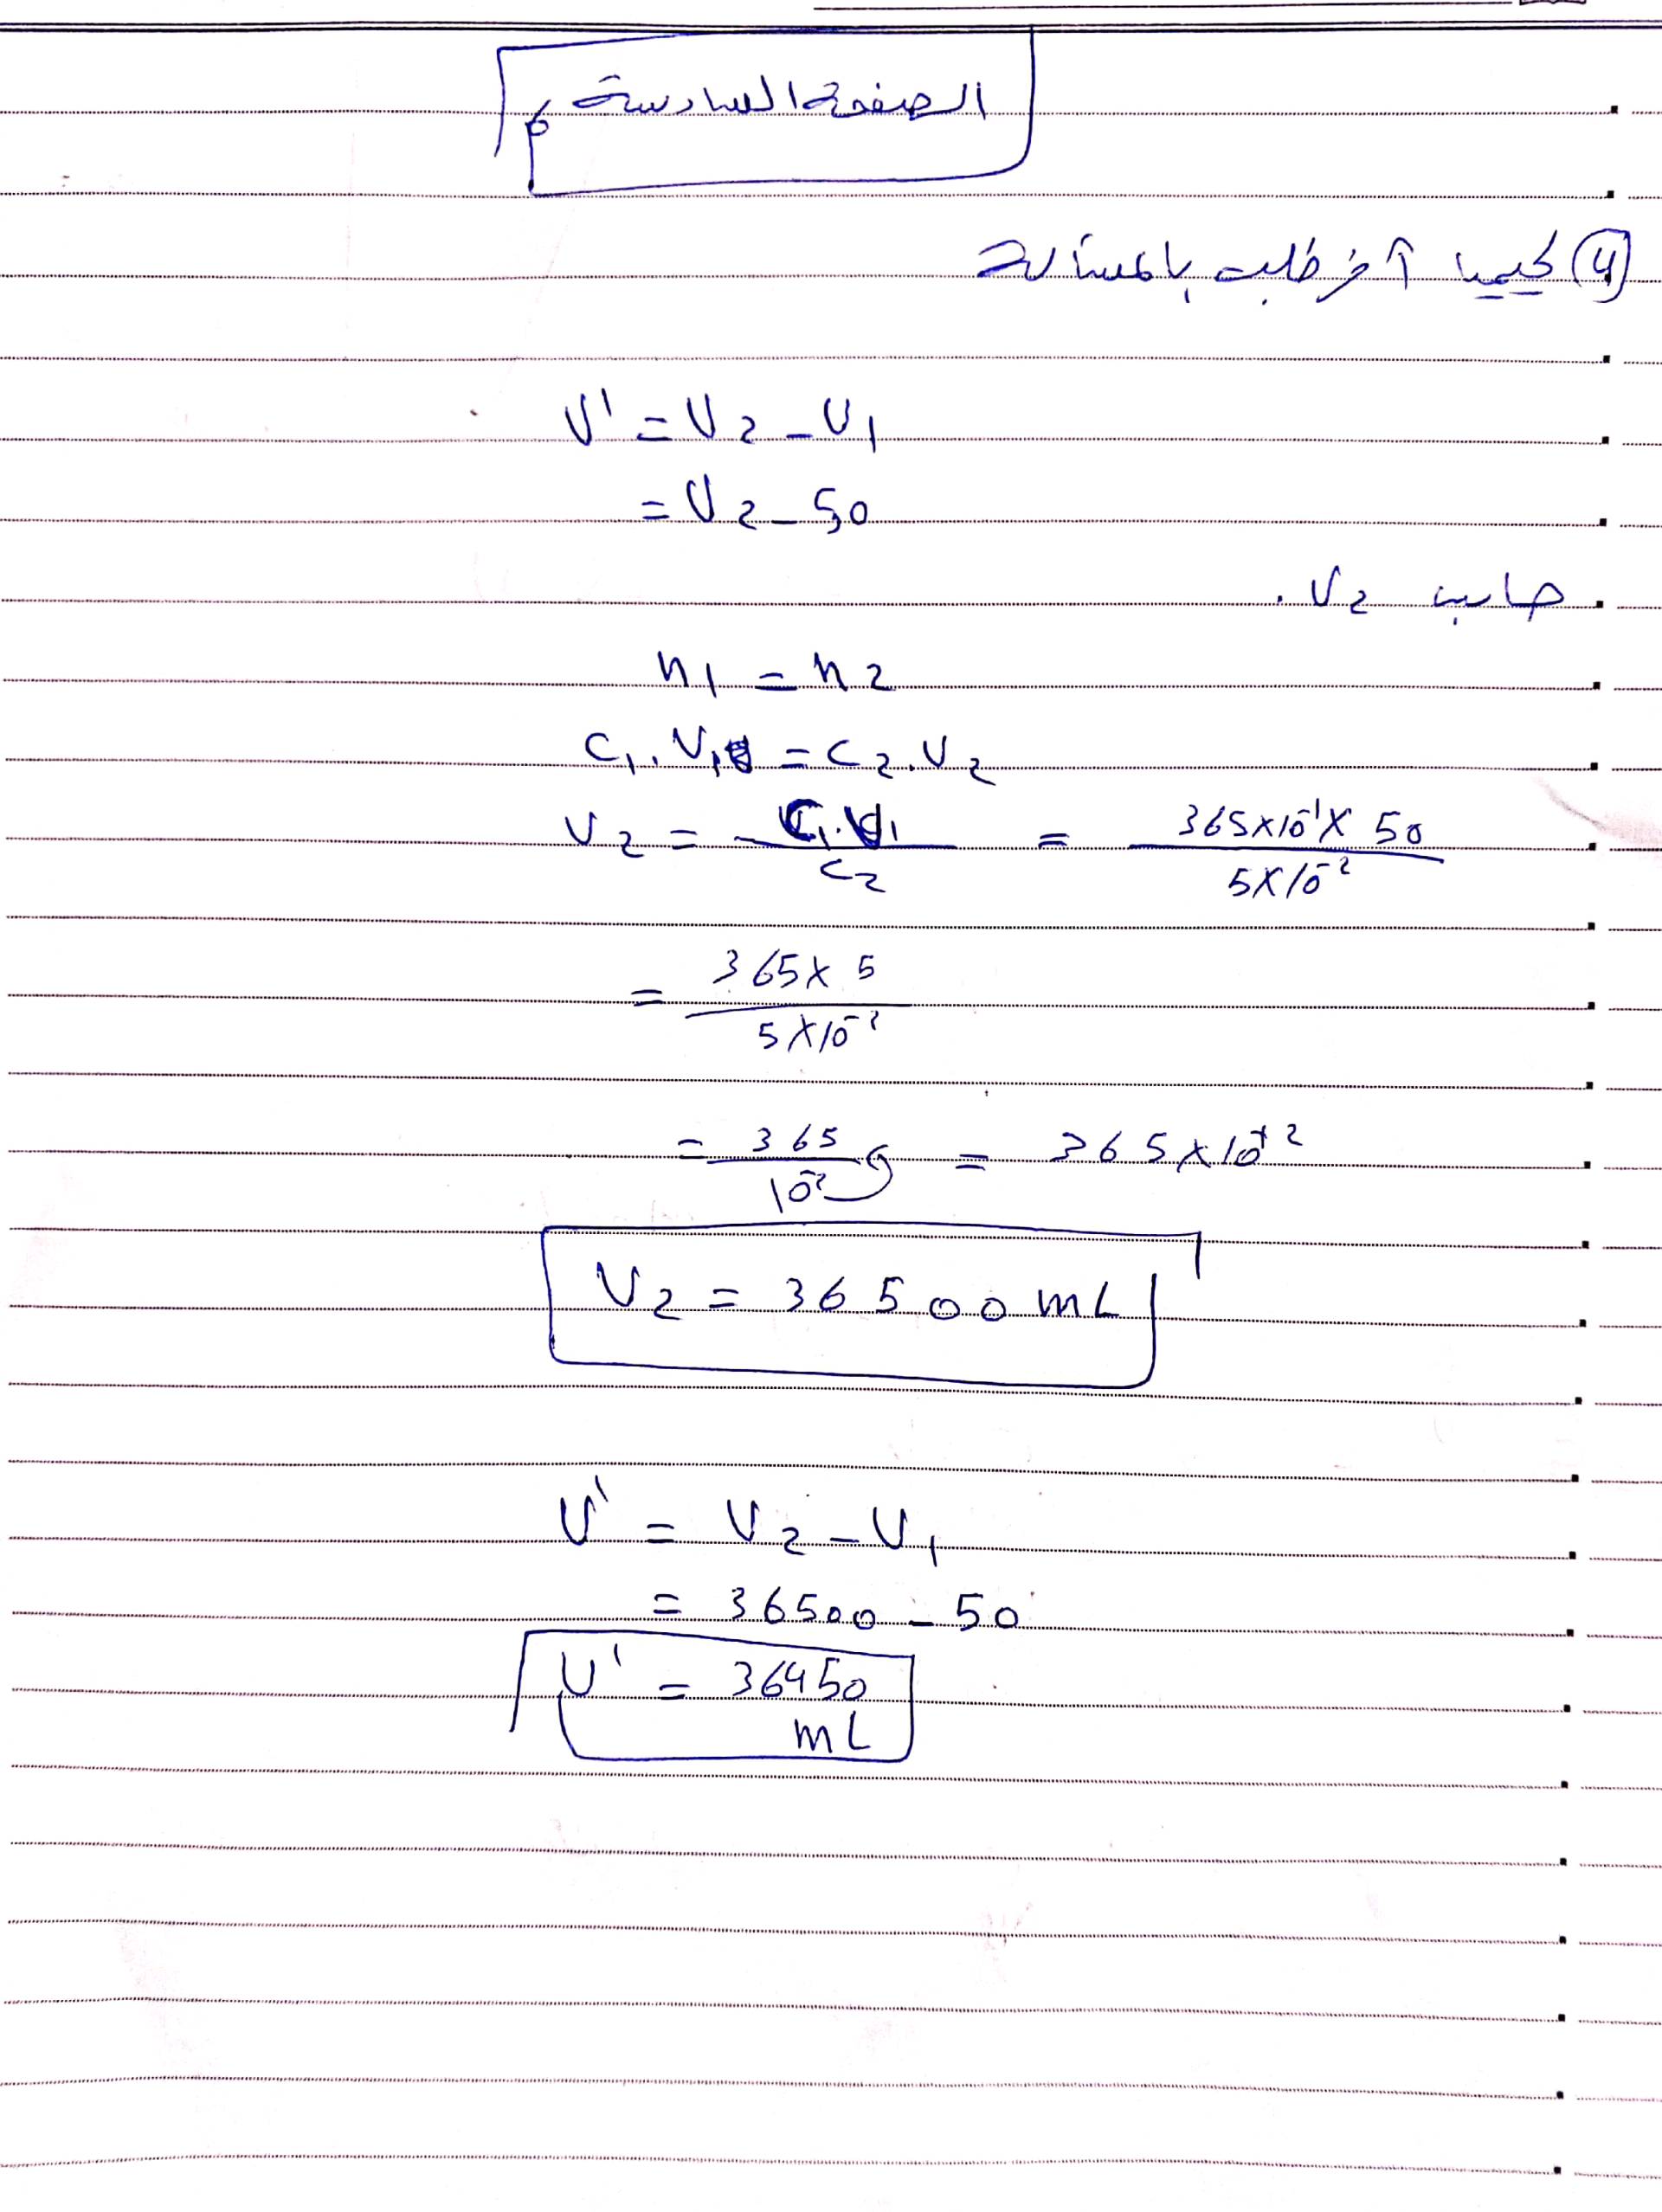 الصفحة السادسة 6
4 كيميا آخر طلب بالمسألة
V' = V2 - V1
= V2 - 50
حساب V2.
n1 = n2
C1. V1 = C2. V2
V2 = C1.V1 / C2 = 365×10^-1 × 50 / 5×10^-2
= 365×5 / 5×10^-2
= 365 / 10^-2 = 365×10^+2
V2 = 36500 mL
V' = V2 - V1
= 36500 - 50
V' = 36450
mL